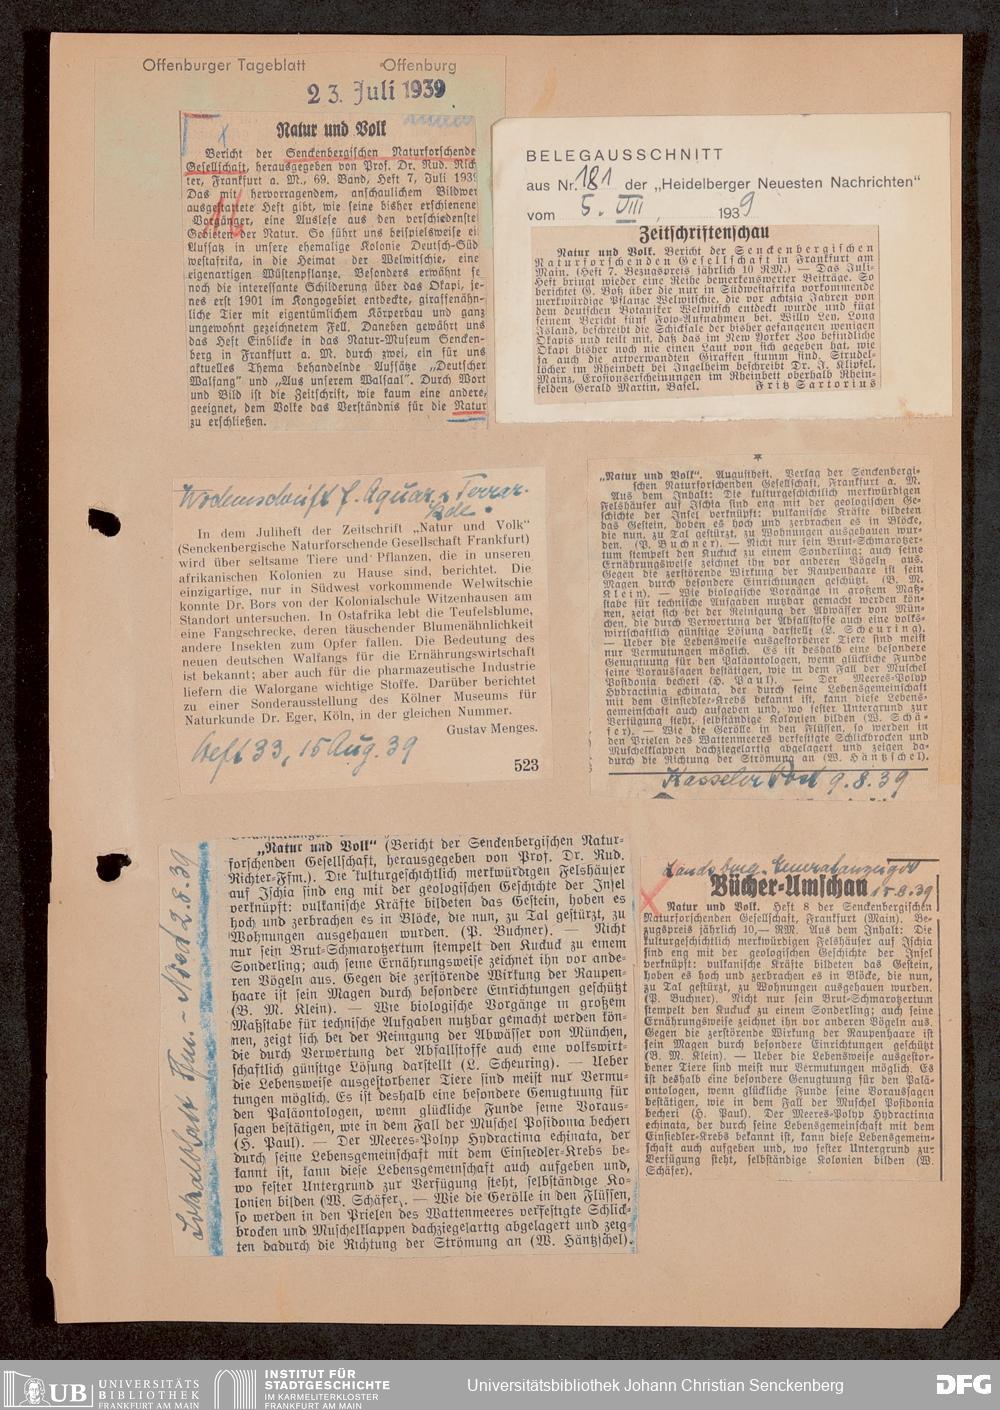 Offenburger Tageblatt Offenburg
23. Juli 1939
Natur und Volk
Bericht der Senckenbergischen Naturforschende
Gesellschaft, herausgegeben von Prof. Dr. Rud. Rich
ter, Frankfurt a. M., 69. Band, Heft 7, Juli 1939
Das mit hervorragendem, anschaulichem Bildwer
ausgestattete Heft gibt, wie seine bisher erschienene
Vorgänger, eine Auslese aus den verschiedenste
Gebieten der Natur. So führt uns beispielsweise ei
Aufsatz in unsere ehemalige Kolonie Deutsch-Süd
westafrika, in die Heimat der Welwitschie, eine
eigenartigen Wüstenpflanze. Besonders erwähnt se
noch die interessante Schilderung über das Okapi, je-
nes erst 1901 im Kongogebiet entdeckte, giraffenähn-
liche Tier mit eigentümlichem Körperbau und ganz
ungewohnt gezeichnetem Fell. Daneben gewährt uns
das Heft Einblicke in das Natur-Museum Sencken-
berg in Frankfurt a. M. durch zwei, ein für uns
aktuelles Thema behandelnde Aufsätze „Deutscher
Walfang" und „Aus unserem Walsaal". Durch Wort
und Bild ist die Zeitschrift, wie kaum eine andere,
geeignet, dem Volke das Verständnis für die Natur
zu erschließen.
BELEGAUSSCHNITT
aus Nr. 181 der „Heidelberger Neuesten Nachrichten"
vom 5. VIII, 1939
Zeitschriftenschau
Natur und Volk. Bericht der Senckenbergischen
Naturforschenden Gesellschaft in Frankfurt am
Main. (Heft 7. Bezugspreis jährlich 10 RM.) — Das Juli-
Heft bringt wieder eine Reihe bemerkenswerter Beiträge. So
berichtet G. Voß über die nur in Südwestafrika vorkommende
merkwürdige Pflanze Welwitschie, die vor achtzig Jahren von
dem deutschen Botaniker Welwitsch entdeckt wurde und fügt
seinem Bericht fünf Foto-Aufnahmen bei. Willy Ley, Long
Island, beschreibt die Schicksale der bisher gefangenen wenigen
Okapis und teilt mit, daß das im New Yorker Zoo befindliche
Okapi bisher noch nie einen Laut von sich gegeben hat, wie
ja auch die artverwandten Giraffen stumm sind. Strudel-
löcher im Rheinbett bei Ingelheim beschreibt Dr. J. Klipfel,
Mainz, Erosionserscheinungen im Rheinbett oberhalb Rhein-
felden Gerald Martin, Basel. Fritz Sartorius
Wochenschrift f. Aquar. u. Terrar.
kde.
In dem Juliheft der Zeitschrift „Natur und Volk"
(Senckenbergische Naturforschende Gesellschaft Frankfurt)
wird über seltsame Tiere und Pflanzen, die in unseren
afrikanischen Kolonien zu Hause sind, berichtet. Die
einzigartige, nur in Südwest vorkommende Welwitschie
konnte Dr. Bors von der Kolonialschule Witzenhausen am
Standort untersuchen. In Ostafrika lebt die Teufelsblume,
eine Fangschrecke, deren täuschender Blumenähnlichkeit
andere Insekten zum Opfer fallen. Die Bedeutung des
neuen deutschen Walfangs für die Ernährungswirtschaft
ist bekannt; aber auch für die pharmazeutische Industrie
liefern die Walorgane wichtige Stoffe. Darüber berichtet
zu einer Sonderausstellung des Kölner Museums für
Naturkunde Dr. Eger, Köln, in der gleichen Nummer.
Gustav Menges.
Heft 33, 15 Aug. 39
523
*
„Natur und Volk". Augustheft. Verlag der Senckenbergi-
schen Naturforschenden Gesellschaft, Frankfurt a. M.
Aus dem Inhalt: Die kulturgeschichtlich merkwürdigen
Felshäuser auf Ischia sind eng mit der geologischen Ge-
schichte der Insel verknüpft: vulkanische Kräfte bildeten
das Gestein, hoben es hoch und zerbrachen es in Blöcke,
die nun, zu Tal gestürzt, zu Wohnungen ausgehauen wur-
den. (P. Buchner). — Nicht nur sein Brut-Schmarotzer-
tum stempelt den Kuckuck zu einem Sonderling; auch seine
Ernährungsweise zeichnet ihn vor anderen Vögeln aus.
Gegen die zerstörende Wirkung der Raupenhaare ist sein
Magen durch besondere Einrichtungen geschützt. (B. M.
Klein). — Wie biologische Vorgänge in großem Maß-
stabe für technische Aufgaben nutzbar gemacht werden kön-
nen, zeigt sich bei der Reinigung der Abwässer von Mün-
chen, die durch Verwertung der Abfallstoffe auch eine volks-
wirtschaftlich günstige Lösung darstellt (L. Scheuring).
— Ueber die Lebensweise ausgestorbener Tiere sind meist
nur Vermutungen möglich. Es ist deshalb eine besondere
Genugtuung für den Paläontologen, wenn glückliche Funde
seine Voraussagen bestätigen, wie in dem Fall der Muschel
Posidonia becheri (H. Paul). — Der Meeres-Polyp
Hydractinia echinata, der durch seine Lebensgemeinschaft
mit dem Einsiedler-Krebs bekannt ist, kann diese Lebens-
gemeinschaft auch aufgeben und, wo fester Untergrund zur
Verfügung steht, selbständige Kolonien bilden (W. Schä-
fer). — Wie die Gerölle in den Flüssen, so werden in
den Prielen des Wattenmeeres verfestigte Schlickbrocken und
Muschelklappen dachziegelartig abgelagert und zeigen da-
durch die Richtung der Strömung an (W. Häntzschel).
Kasseler Post 9.8.39
Lokalblatt Ffm. - Nied 2.8.39
„Natur und Volk" (Bericht der Senckenbergischen Natur-
forschenden Gesellschaft, herausgegeben von Prof. Dr. Rud.
Richter-Ffm.). Die kulturgeschichtlich merkwürdigen Felshäuser
auf Ischia sind eng mit der geologischen Geschichte der Insel
verknüpft: vulkanische Kräfte bildeten das Gestein, hoben es
hoch und zerbrachen es in Blöcke, die nun, zu Tal gestürzt, zu
Wohnungen ausgehauen wurden. (P. Buchner). — Nicht
nur sein Brut-Schmarotzertum stempelt den Kuckuck zu einem
Sonderling; auch seine Ernährungsweise zeichnet ihn vor ande-
ren Vögeln aus. Gegen die zerstörende Wirkung der Raupen-
haare ist sein Magen durch besondere Einrichtungen geschützt
(B. M. Klein). — Wie biologische Vorgänge in großem
Maßstabe für technische Aufgaben nutzbar gemacht werden kön-
nen, zeigt sich bei der Reinigung der Abwässer von München,
die durch Verwertung der Abfallstoffe auch eine volkswirt-
schaftlich günstige Lösung darstellt (L. Scheuring). — Ueber
die Lebensweise ausgestorbener Tiere sind meist nur Vermu-
tungen möglich. Es ist deshalb eine besondere Genugtuung für
den Paläontologen, wenn glückliche Funde seine Voraus-
sagen bestätigen, wie in dem Fall der Muschel Posidonia becheri
(H. Paul). — Der Meeres-Polyp Hydractinia echinata, der
durch seine Lebensgemeinschaft mit dem Einsiedler-Krebs be-
kannt ist, kann diese Lebensgemeinschaft auch aufgeben und,
wo fester Untergrund zur Verfügung steht, selbständige Ko-
lonien bilden (W. Schäfer). — Wie die Gerölle in den Flüssen,
so werden in den Prielen des Wattenmeeres verfestigte Schlick-
brocken und Muschelklappen dachziegelartig abgelagert und zeig-
ten dadurch die Richtung der Strömung an (W. Häntzschel).
Landsberg. Generalanzeiger
Bücher-Umschau 15.8.39
Natur und Volk. Heft 8 der Senckenbergischen
Naturforschenden Gesellschaft, Frankfurt (Main). Be-
zugspreis jährlich 10,— RM. Aus dem Inhalt: Die
kulturgeschichtlich merkwürdigen Felshäuser auf Ischia
sind eng mit der geologischen Geschichte der Insel
verknüpft: vulkanische Kräfte bildeten das Gestein,
hoben es hoch und zerbrachen es in Blöcke, die nun,
zu Tal gestürzt, zu Wohnungen ausgehauen wurden.
(P. Buchner). Nicht nur sein Brut-Schmarotzertum
stempelt den Kuckuck zu einem Sonderling; auch seine
Ernährungsweise zeichnet ihn vor anderen Vögeln aus.
Gegen die zerstörende Wirkung der Raupenhaare ist
sein Magen durch besondere Einrichtungen geschützt
(B. M. Klein). — Ueber die Lebensweise ausgestor-
bener Tiere sind meist nur Vermutungen möglich. Es
ist deshalb eine besondere Genugtuung für den Palä-
ontologen, wenn glückliche Funde seine Voraussagen
bestätigen, wie in dem Fall der Muschel Posidonia
becheri (H. Paul). Der Meeres-Polyp Hydractinia
echinata, der durch seine Lebensgemeinschaft mit dem
Einsiedler-Krebs bekannt ist, kann diese Lebensgemein-
schaft auch aufgeben und, wo fester Untergrund zur
Verfügung steht, selbständige Kolonien bilden (W.
Schäfer).
UB UNIVERSITÄTS
BIBLIOTHEK
FRANKFURT AM MAIN
INSTITUT FÜR
STADTGESCHICHTE
IM KARMELITERKLOSTER
FRANKFURT AM MAIN
Universitätsbibliothek Johann Christian Senckenberg
DFG